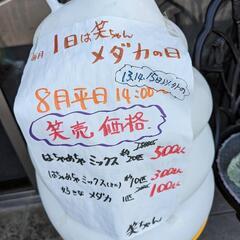 毎月1日は笑ちゃん
メダカの日
13,14,15日
8月平日14:00〜
笑売価格
はちゃめちゃミックス 約20匹 500
はちゃめちゃミックス 約10匹 300
好きな メダカ 1匹 100
笑ちゃん